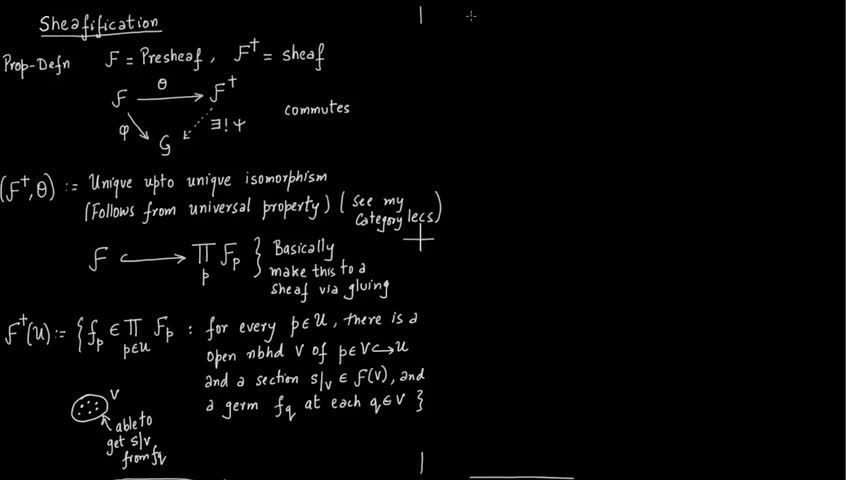 Sheafification
Prop-Defn F = Presheaf, F† = sheaf
F θ→ F†
φ G ∃! ψ commutes
(F†, θ) := Unique upto unique isomorphism
(Follows from universal property) (see my category lecs)
F ↪ ∏_p F_p } Basically
make this to a
sheaf via gluing
F†(U) := { f_p ∈ ∏_{p∈U} F_p : for every p∈U, there is a
open nbhd V of p∈V↪U
and a section s|_V ∈ F(V), and
a germ f_q at each q∈V }
V
able to
get s|_V
from f_q